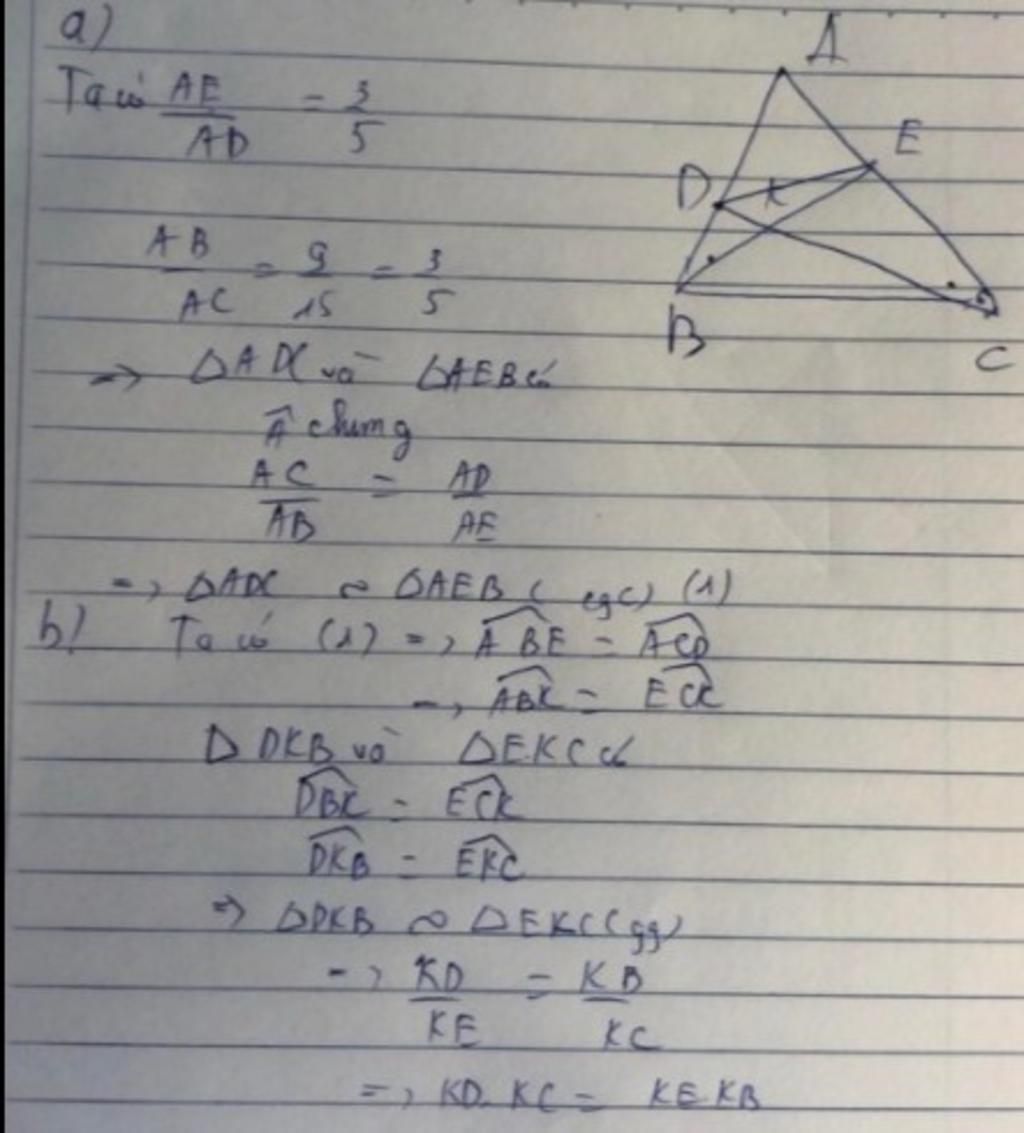 a)
Ta có AE/AD = 3/5
AB/AC = 9/15 = 3/5
=> ΔADC và ΔAEB có
Â chung
AC/AB = AD/AE
=> ΔADC ∽ ΔAEB (cgc) (1)
b) Ta có (1) => ABE^ = ACD^
=> ABK^ = ECK^
Δ DKB và ΔEKC có
DBK^ = ECK^
DKB^ = EKC^
=> ΔDKB ∽ ΔEKC (gg)
=> KD/KE = KB/KC
=> KD.KC = KE.KB
A
E
D
K
B
C